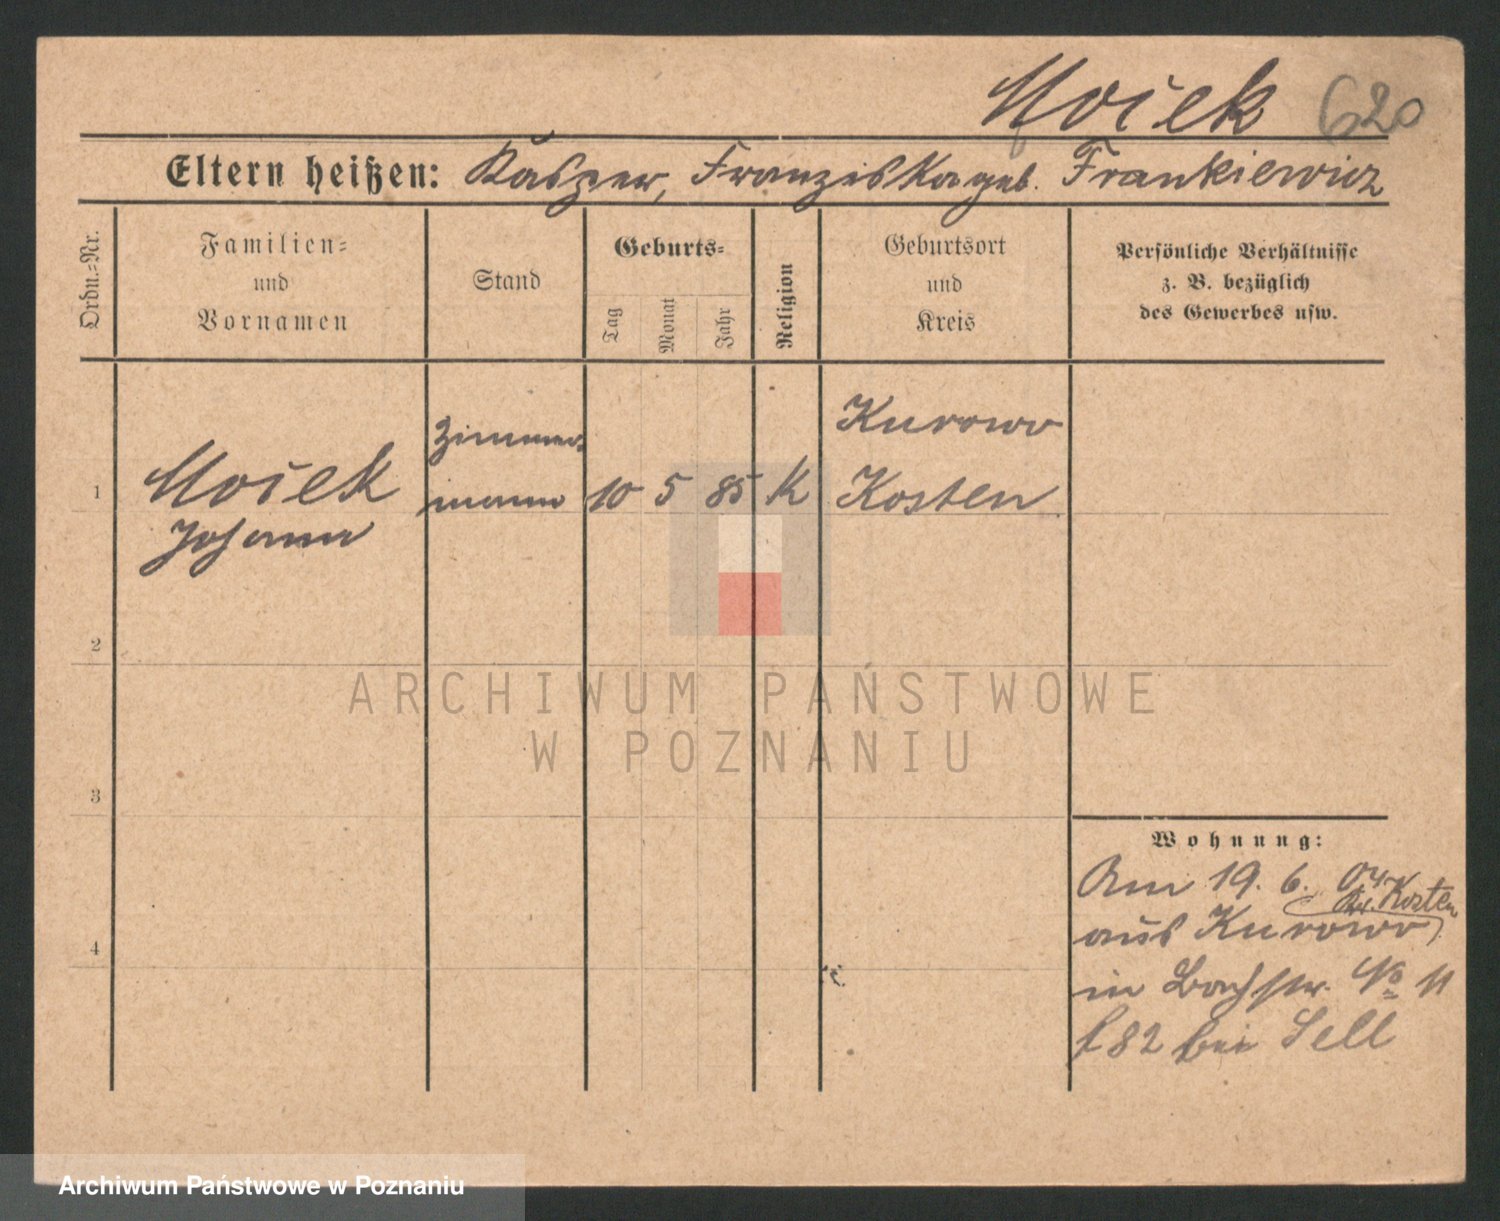 Mociek 620
Eltern heißen: Kasper, Franziska geb. Frankiewicz
Ordn.=Nr.
Familien=
und
Vornamen
Stand
Geburts=
Tag
Monat
Jahr
Religion
Geburtsort
und
Kreis
Persönliche Verhältnisse
z. B. bezüglich
des Gewerbes usw.
1
Mociek
Johann
Zimmer
mann
10 5 85 K
Kurowo
Kosten
2
3
4
Wohnung:
Am 19. 6. 04
Kr. Kosten
aus Kurowo
in Bachstr. No 11
bei Sell
ARCHIWUM PAŃSTWOWE
W POZNANIU
Archiwum Państwowe w Poznaniu